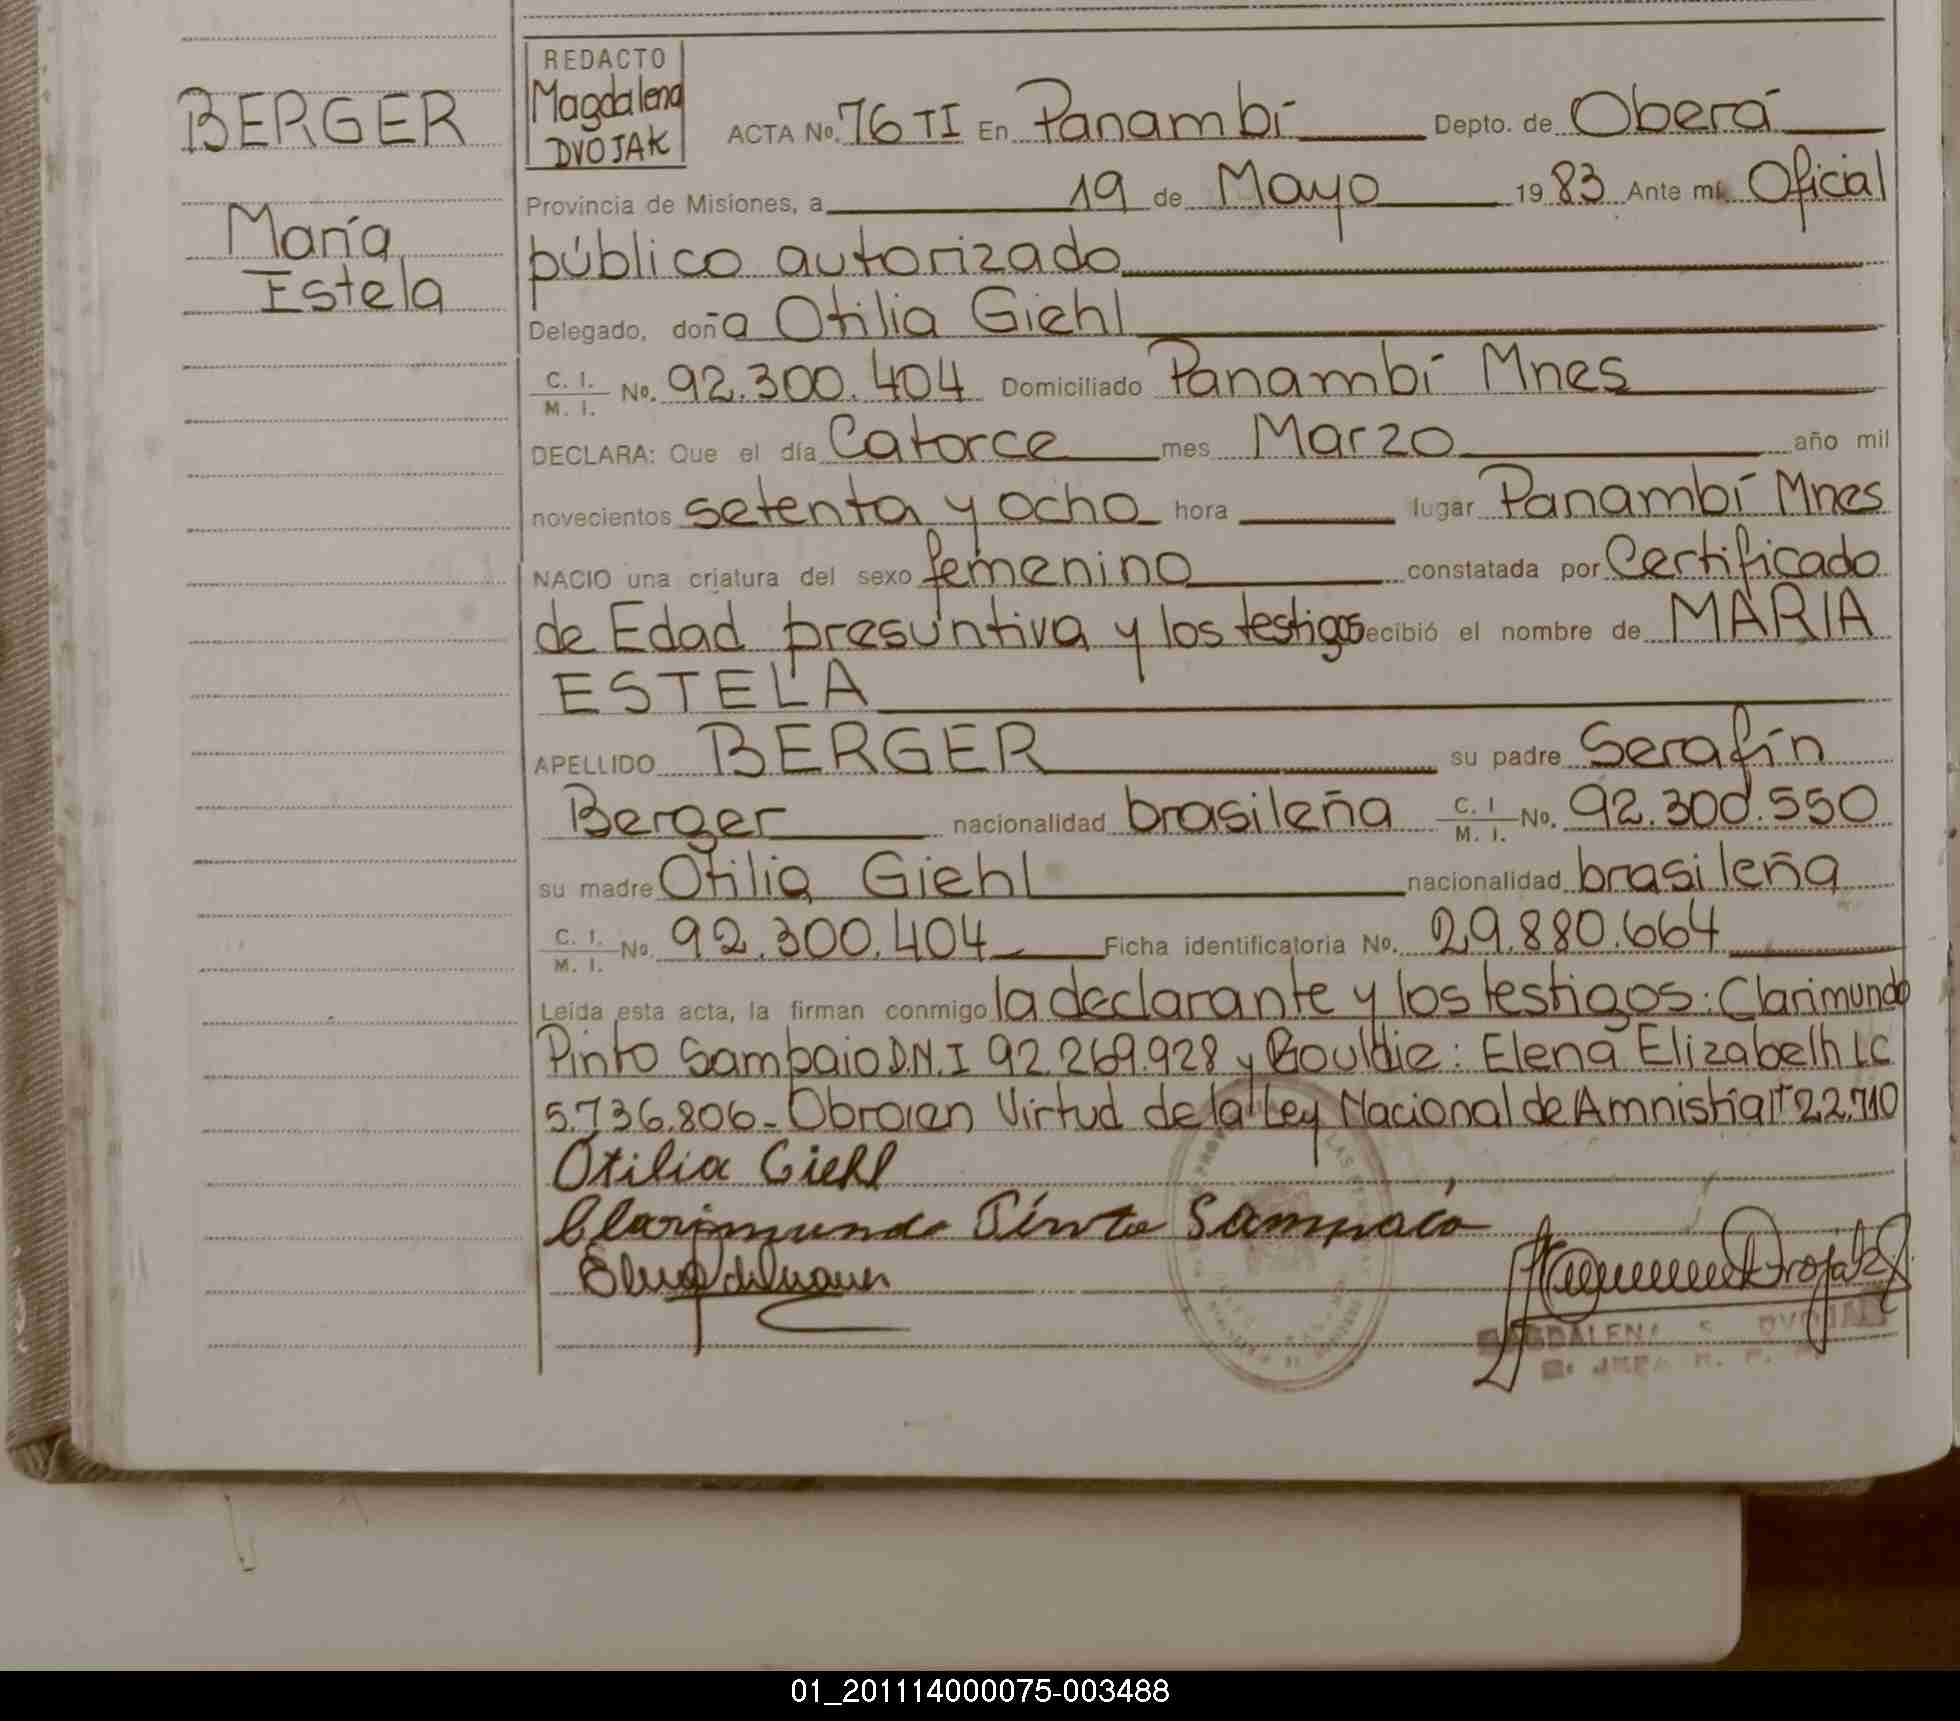 BERGER
María
Estela
REDACTO
Magdalena
DVOJAK
ACTA No. 76 TI En Panambí Depto. de Oberá
Provincia de Misiones, a 19 de Mayo 1983 Ante mí Oficial
público autorizado
Delegado, doña Otilia Giehl
C. I. M. I. No. 92.300.404 Domiciliado Panambí Mnes
DECLARA: Que el día Catorce mes Marzo año mil
novecientos setenta y ocho hora lugar Panambí Mnes
NACIO una criatura del sexo femenino constatada por Certificado
de Edad presuntiva y los testigos ecibió el nombre de MARIA
ESTELA
APELLIDO BERGER su padre Serafín
Berger nacionalidad brasileña C. I M. I. No. 92.300.550
su madre Otilia Giehl nacionalidad brasileña
C. I. M. I. No. 92.300.404 Ficha identificatoria No. 29.880.664
Leída esta acta, la firman conmigo la declarante y los testigos: Clarimundo
Pinto Sampaio D.N.I 92.269.928 y Bouldie: Elena Elizabelh LC
5.736.806- Obro en Virtud de la Ley Nacional de Amnistía 22.710
Otilia Giehl
Clarimundo Pinto Sampaio
MAGDALENA S. DVOJAK
01_201114000075-003488